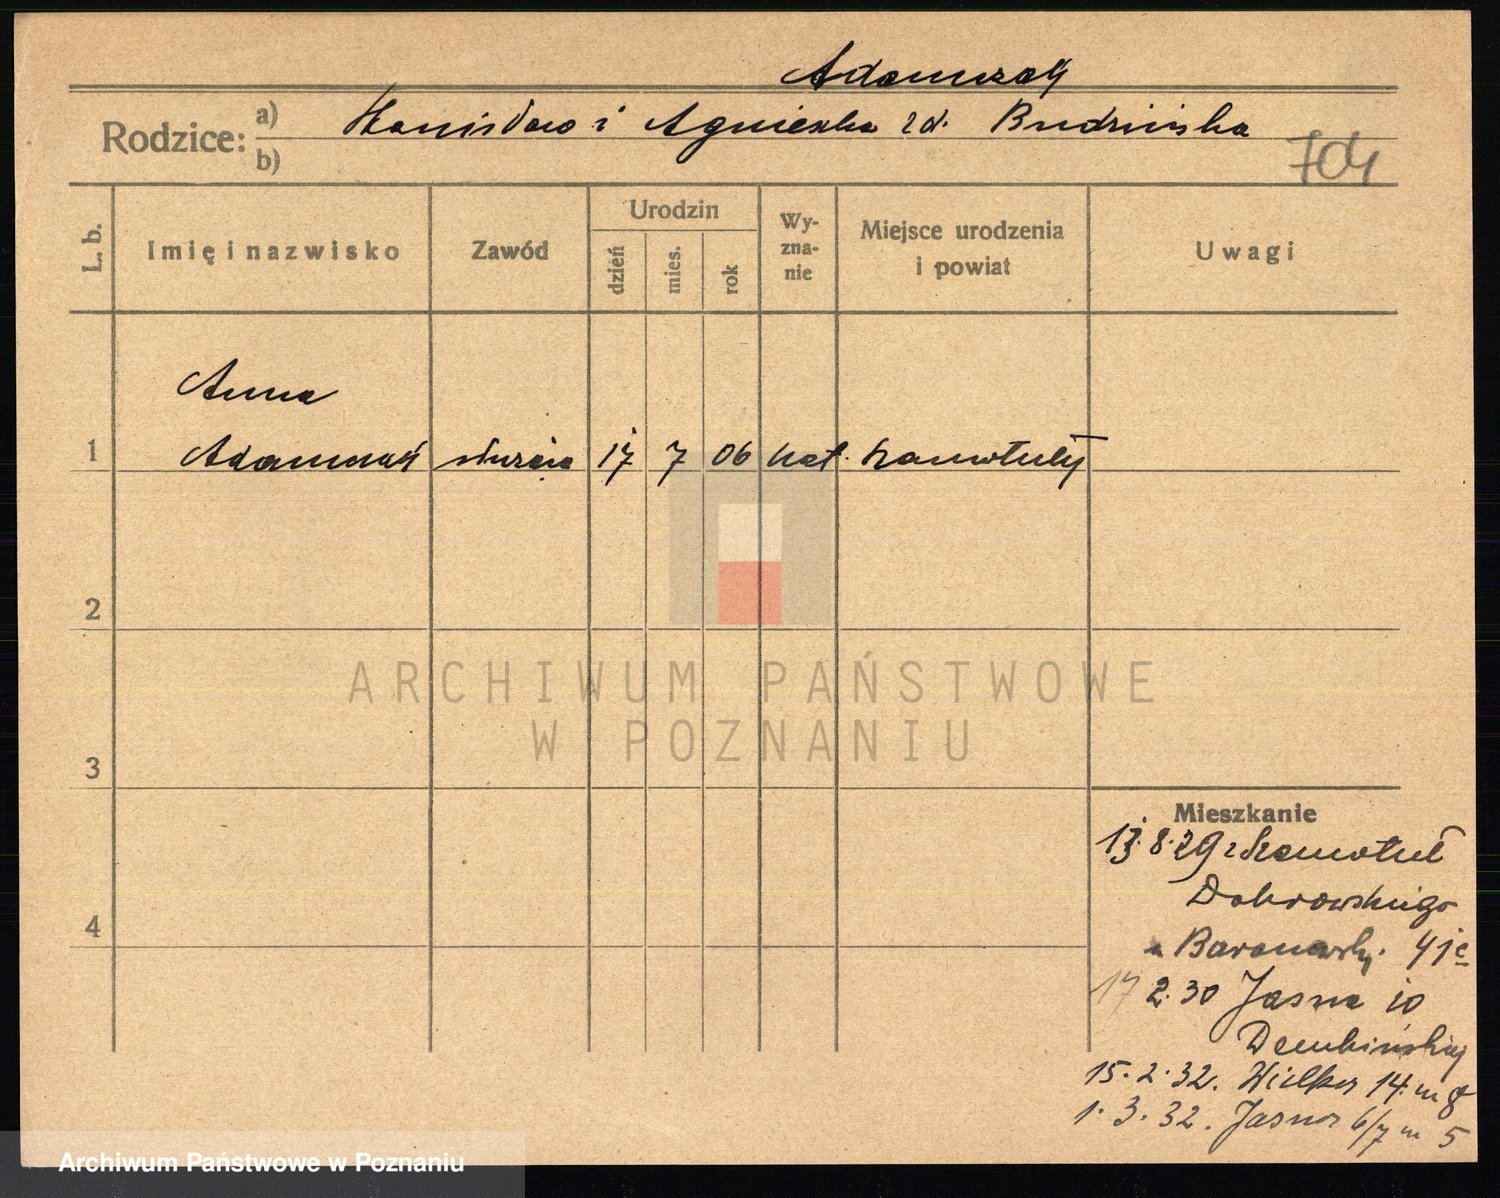 Adamczak
Rodzice: a) Stanisław i Agnieszka zd. Budzińska
b)
704
L. b.
Imię i nazwisko
Zawód
Urodzin
dzień
mies.
rok
Wy-
zna-
nie
Miejsce urodzenia
i powiat
Uwagi
Anna
1 Adamczak służąca 17 7 06 kat. Szamotuły
2
3
4
ARCHIWUM PAŃSTWOWE
W POZNANIU
Mieszkanie
13.8.29 z Szamotuł
Dąbrowskiego
Baranowski 41c
17 2.30 Jasna 10
Dembińskiej
15.2.32. Wielka 14 m 8
1.3.32. Jasna 6/7 m 5
Archiwum Państwowe w Poznaniu